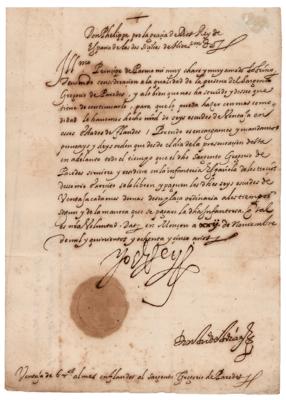 Don Phelippe por la gracia de Dios Rey de
España de las dos Sicilias de Hierusalem &c
Illmo Principe de Parma mi muy charo y muy amado sobrino
teniendo consideracion a la qualidad de la persona del Sargento
Gregorio de Paredes, y a lo bien que nos ha seruido y desseo que
tiene de continuarlo, para que lo pueda hazer con mas como
didad le hauemos hecho md de seys escudos de Ventaja en
essos estados de Flandes; Por ende os encargamos y mandamos
proueays y deys orden que desde el dia de la presentacion desta
en adelante todo el tiempo que el dho Sargento Gregorio de
Paredes siruiere y residiere en la infanteria Española de los tercios
de se le libren, y paguen los dhos seys escudos de
Ventaja cada mes demas de su plaça ordinaria a los tiempos
segun y de la manera que se pagare la dha Infanteria, que tal
es mi voluntad. Dat. en Monçon a de Nouiembre
de mil y quinientos y ochenta y cinco años
Yo el Rey
Ventaja de 6 al mes en Flandes al Sargento Gregorio de Paredes